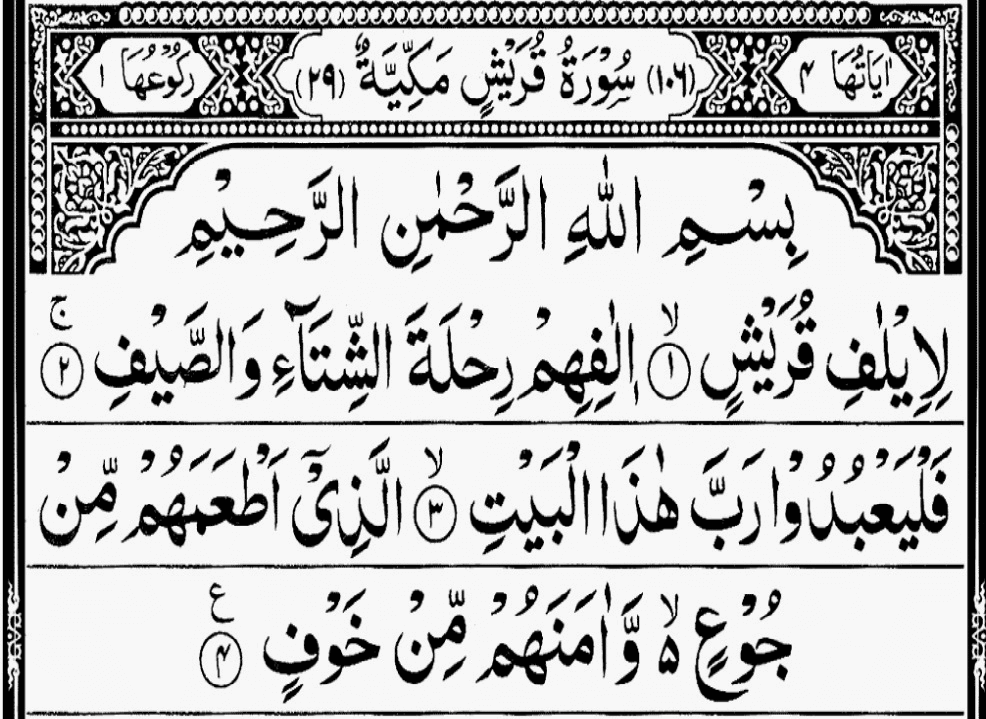 اٰيَاتُهَا ۴ (۱۰۶) سُوْرَةُ قُرَيْشٍ مَكِّيَّةٌ (۲۹) رَكُوْعُهَا ۱
بِسْمِ اللّٰهِ الرَّحْمٰنِ الرَّحِيْمِ
لِاِيْلٰفِ قُرَيْشٍ ۙ﴿۱﴾ اٖلٰفِهِمْ رِحْلَةَ الشِّتَآءِ وَالصَّيْفِ ۚ﴿۲﴾
فَلْيَعْبُدُوْا رَبَّ هٰذَا الْبَيْتِ ۙ﴿۳﴾ الَّذِیْۤ اَطْعَمَهُمْ مِّنْ
جُوْعٍ ۵ۙ وَّاٰمَنَهُمْ مِّنْ خَوْفٍ ﴿۴﴾ ع